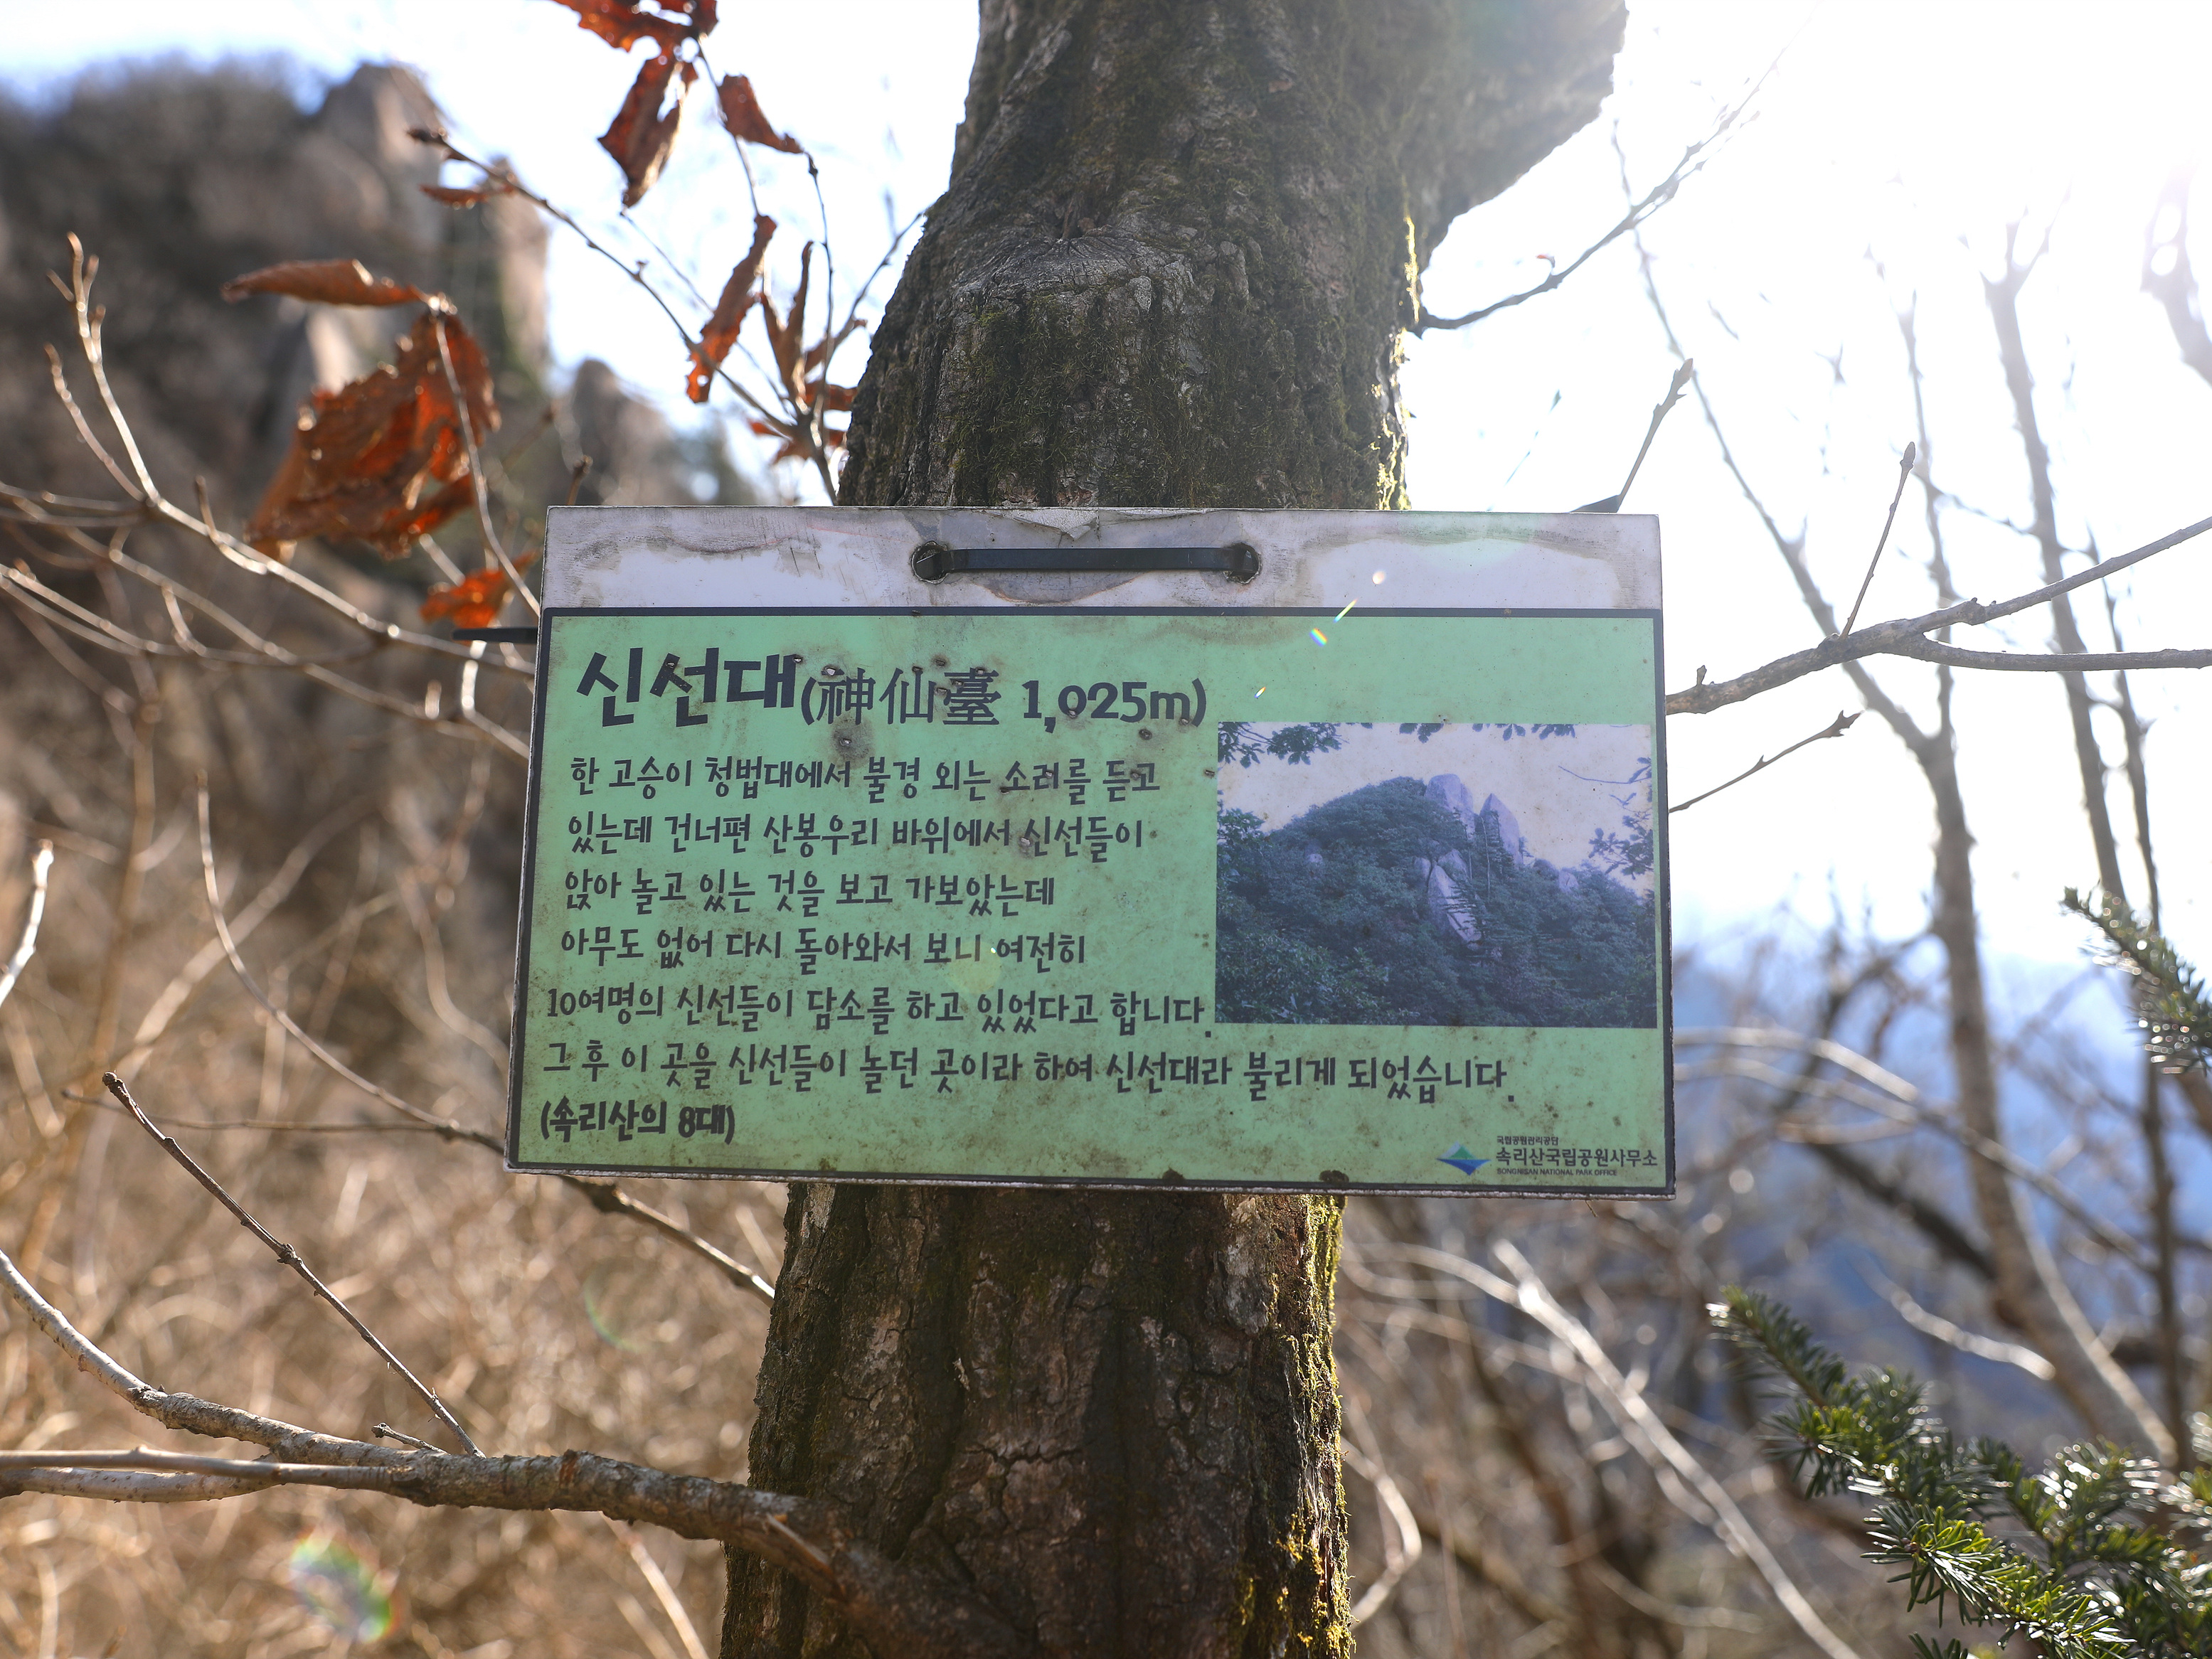 신선대(神仙臺 1,025m)
한 고승이 청법대에서 불경 외는 소리를 듣고
있는데 건너편 산봉우리 바위에서 신선들이
앉아 놀고 있는 것을 보고 가보았는데
아무도 없어 다시 돌아와서 보니 여전히
10여명의 신선들이 담소를 하고 있었다고 합니다.
그 후 이 곳을 신선들이 놀던 곳이라 하여 신선대라 불리게 되었습니다.
(속리산의 8대)
국립공원관리공단
속리산국립공원사무소
SONGNISAN NATIONAL PARK OFFICE